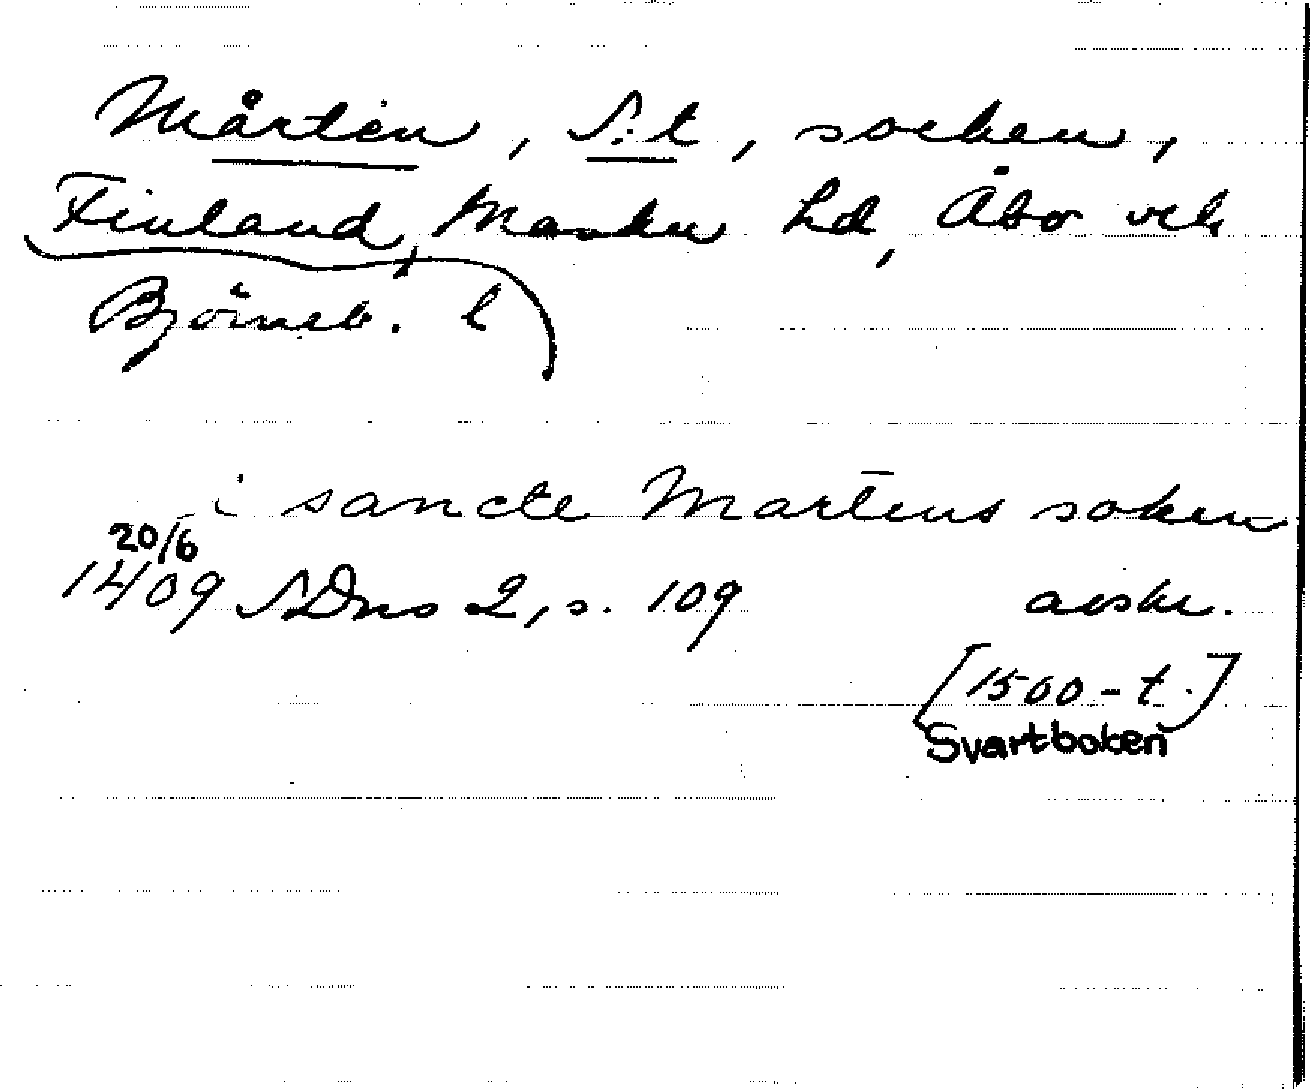 Mårten, S:t, socken,
Finland, Masku hd, Åbo och
Björneb. l
i sancte Martens soken
20/6
1409 SDns 2, s. 109 avskr.
[1500-t.]
Svartboken